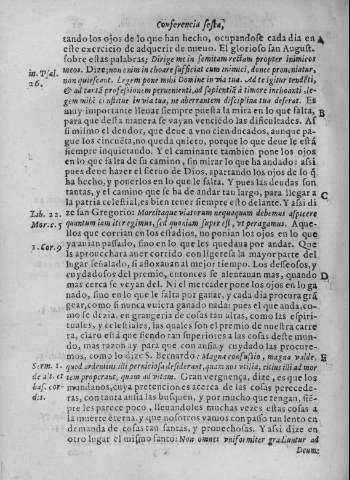 Conferencia sesta,
tando los ojos de lo que han hecho, ocupandose cada dia en
este exercicio de adquerir de nueuo. El glorioso san August. A
sobre estas palabras; Dirige me in semitam rectam propter inimicos
in. Psal. meos. Dize; non enim inchoare sufficiat cum inimici, donec pronuntiatur,
26. non quiescant. Legem pone mihi Domine in via tua. Ad te igitur tendēti,
& ad tantā professionem peruenienti, ad sapientiā à timore inchoanti, le-
gem mihi constitue in via tua, ne aberrantem disciplina tua deserat. Es
muy importante lleuar siempre puesta la mira en lo que falta, B
para que desta manera se vayan venciēdo las dificultades. Assi
si mismo el deudor, que deue a vno cien ducados, aunque pa-
gue los cincuēta, no queda quieto, porque lo que deue le està
siempre inquietando. Y el caminante tambien pone los ojos
en lo que falta de su camino, sin mirar lo que ha andado: assi
pues deue hazer el sieruo de Dios, apartando los ojos de lo q̄
ha hecho, y ponerlos en lo que le falta. Y pues las deudas son
tantas, y el camino que se ha de andar tan largo, para llegar a C
la patria celestial, es bien tener siempre esto delante. Y assi di
Lib. 22. ze san Gregorio: More itaque viatorum nequaquam debemus aspicere
Mor. c. 5 quantum iam iter egimus, sed quoniam superest, vt peragamus. Aque-
llos que corrian en los estadios, no ponian los ojos en lo que
1. Cor. 9 ya auian passado, sino en lo que les quedaua por andar. Que
les aprouechara auer corrido con ligereza la mayor parte del
lugar señalado, si afloxauan al mejor tiempo. Los desseosos, y
cuydadosos del premio, entonces se alentauan mas, quando D
mas cerca se veyan del. Ni el mercader pone los ojos en lo ga
nado, sino en lo que le falta por ganar, y cada dia procura grā
gear, como si nunca vuiera ganado nada: pues el que anda, co-
mo se dezia, en grangeria de cosas tan altas, como las espiri-
tuales, y celestiales, las quales son el premio de nuestra carre
ra, claro està que siendo tan superiores a las cosas deste mun-
do, mas razon ay para que con ansia, y cuydado las procure-
mos, como lo dize S. Bernardo: Magna confusio, magna valde. E
Serm. 1. quod ardentius illi perniciosa desiderant, quam nos vtilia, citius illi ad mor
de alt. et tem properant, quam ad vitam. Gran verguença, dize, es que los
bas. cor- mundanos, cuya pretencion es acerca de las cosas perecede-
dis. ras, con tanta ansia las busquen, y por mucho que tengan, siē-
pre les parece poco, lleuandoles muchas vezes estas cosas a
la muerte eterna. y que nosotros vamos con passo tan lento en
demanda de cosas tan santas, y prouechosas. Y assi dize en
otro lugar el mismo santo: Non omnes vniformiter gradiuntur ad
Deum: